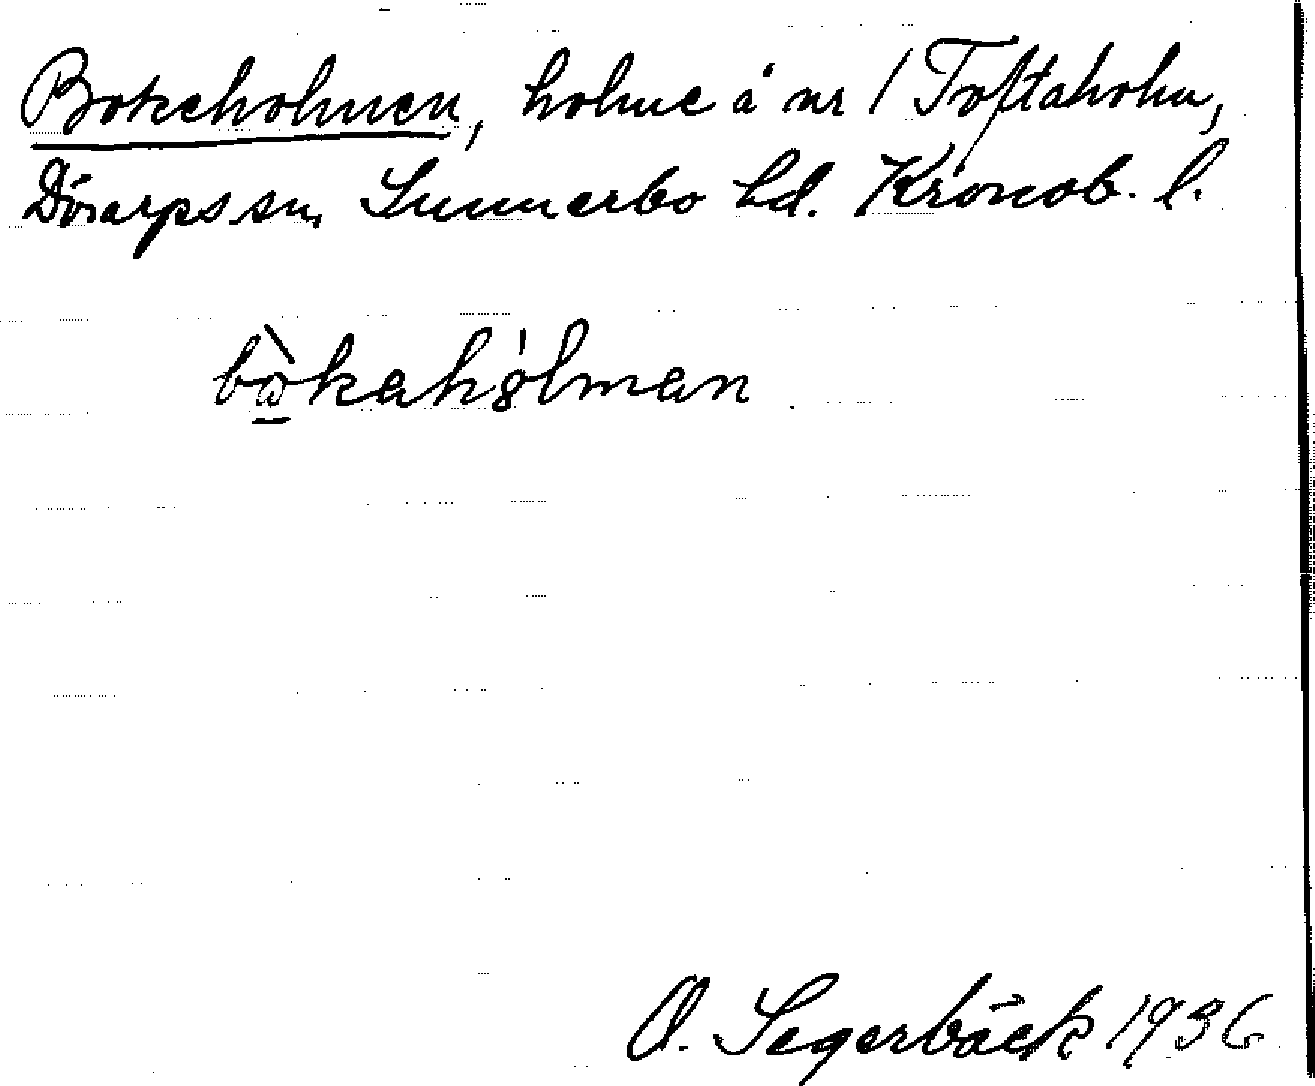 Bokeholmen, holme å nr 1 Toftaholm,
Dörarps sn, Sunnerbo hd. Kronob. l.
bò̱kahòlman
O. Segerbäck 1936